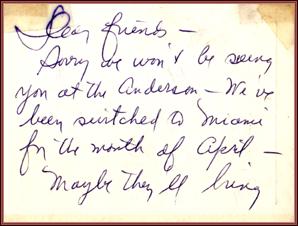 Dear friends —
Sorry we won't be seeing
you at the Anderson — We've
been switched to Miami
for the month of April —
Maybe they'll bring